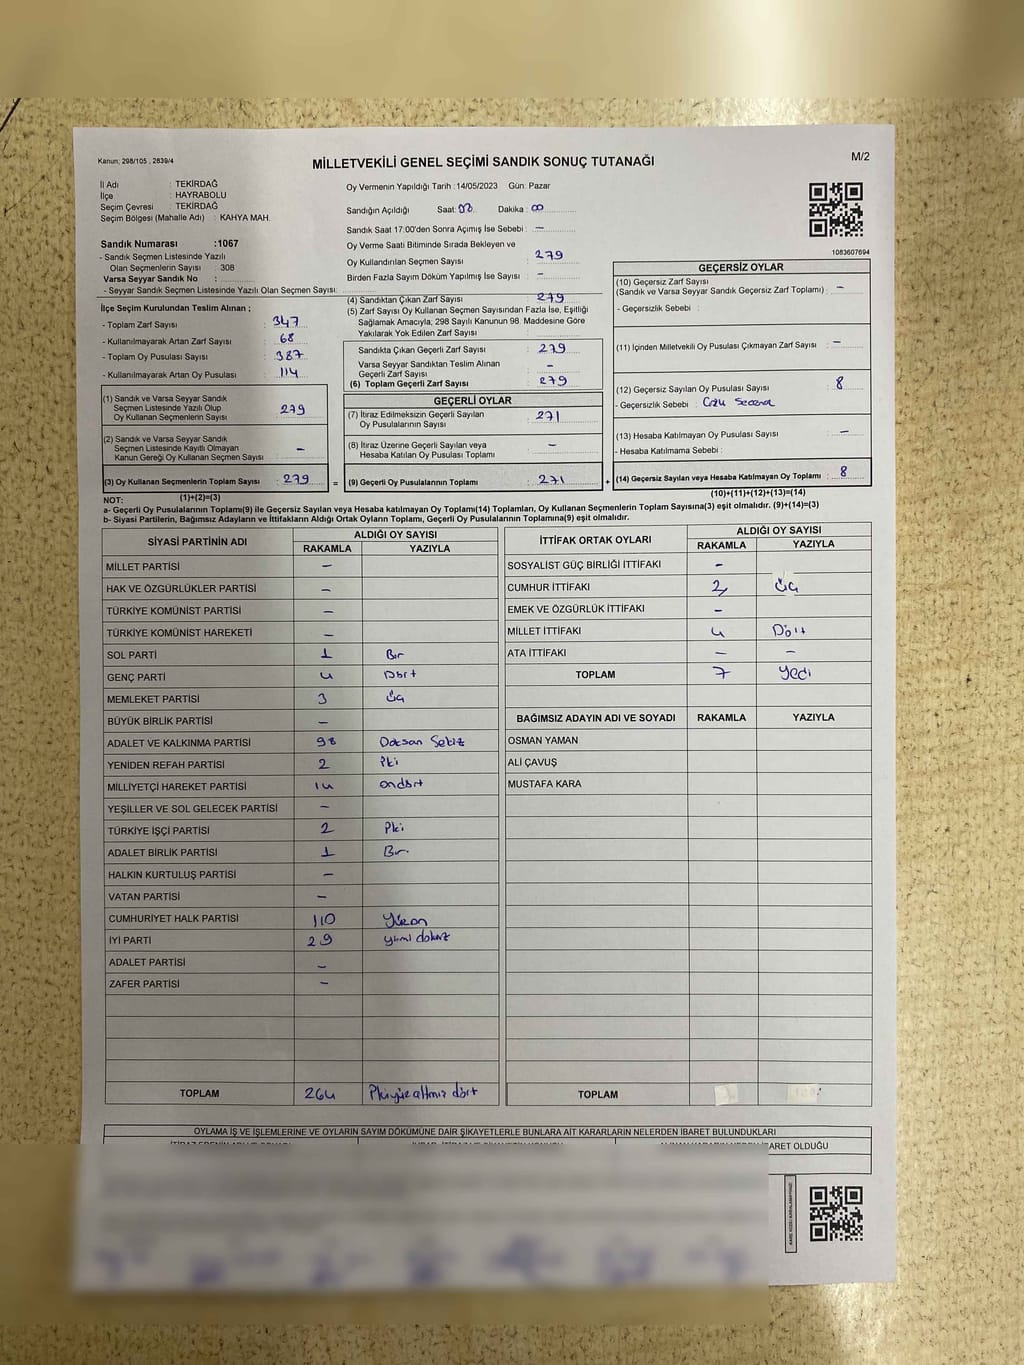 Kanun; 298/105 , 2839/4
MİLLETVEKİLİ GENEL SEÇİMİ SANDIK SONUÇ TUTANAĞI
M/2
İl Adı : TEKİRDAĞ
İlçe : HAYRABOLU
Seçim Çevresi : TEKİRDAĞ
Seçim Bölgesi (Mahalle Adı) : KAHYA MAH.
Sandık Numarası :1067
- Sandık Seçmen Listesinde Yazılı
Olan Seçmenlerin Sayısı : 308
Varsa Seyyar Sandık No :
- Seyyar Sandık Seçmen Listesinde Yazılı Olan Seçmen Sayısı:
Oy Vermenin Yapıldığı Tarih :14/05/2023 Gün: Pazar
Sandığın Açıldığı Saat: Dakika : 00
Sandık Saat 17:00'den Sonra Açımış İse Sebebi : -
Oy Verme Saati Bitiminde Sırada Bekleyen ve
Oy Kullandırılan Seçmen Sayısı : 279
Birden Fazla Sayım Döküm Yapılmış İse Sayısı : -
1083607694
İlçe Seçim Kurulundan Teslim Alınan ;
- Toplam Zarf Sayısı : 347
- Kullanılmayarak Artan Zarf Sayısı : 68
- Toplam Oy Pusulası Sayısı : 387
- Kullanılmayarak Artan Oy Pusulası : 114
(1) Sandık ve Varsa Seyyar Sandık
Seçmen Listesinde Yazılı Olup
Oy Kullanan Seçmenlerin Sayısı : 279
(2) Sandık ve Varsa Seyyar Sandık
Seçmen Listesinde Kayıtlı Olmayan
Kanun Gereği Oy Kullanan Seçmen Sayısı : -
(3) Oy Kullanan Seçmenlerin Toplam Sayısı : 279 =
(4) Sandıktan Çıkan Zarf Sayısı : 279
(5) Zarf Sayısı Oy Kullanan Seçmen Sayısından Fazla İse, Eşitliği
Sağlamak Amacıyla; 298 Sayılı Kanunun 98. Maddesine Göre
Yakılarak Yok Edilen Zarf Sayısı :
Sandıkta Çıkan Geçerli Zarf Sayısı : 279
Varsa Seyyar Sandıktan Teslim Alınan
Geçerli Zarf Sayısı : -
(6) Toplam Geçerli Zarf Sayısı : 279
GEÇERLİ OYLAR
(7) İtiraz Edilmeksizin Geçerli Sayılan
Oy Pusulalarının Sayısı : 271
(8) İtiraz Üzerine Geçerli Sayılan veya
Hesaba Katılan Oy Pusulası Toplamı : -
(9) Geçerli Oy Pusulalarının Toplamı : 271 +
GEÇERSİZ OYLAR
(10) Geçersiz Zarf Sayısı
(Sandık ve Varsa Seyyar Sandık Geçersiz Zarf Toplamı) : -
- Geçersizlik Sebebi :
(11) İçinden Milletvekili Oy Pusulası Çıkmayan Zarf Sayısı : -
(12) Geçersiz Sayılan Oy Pusulası Sayısı : 8
- Geçersizlik Sebebi :
(13) Hesaba Katılmayan Oy Pusulası Sayısı : -
- Hesaba Katılmama Sebebi :
(14) Geçersiz Sayılan veya Hesaba Katılmayan Oy Toplamı : 8
NOT: (1)+(2)=(3)
(10)+(11)+(12)+(13)=(14)
a- Geçerli Oy Pusulalarının Toplamı(9) ile Geçersiz Sayılan veya Hesaba katılmayan Oy Toplamı(14) Toplamları, Oy Kullanan Seçmenlerin Toplam Sayısına(3) eşit olmalıdır. (9)+(14)=(3)
b- Siyasi Partilerin, Bağımsız Adayların ve İttifakların Aldığı Ortak Oyların Toplamı, Geçerli Oy Pusulalarının Toplamına(9) eşit olmalıdır.
SİYASİ PARTİNİN ADI ALDIĞI OY SAYISI
RAKAMLA YAZIYLA
MİLLET PARTİSİ -
HAK VE ÖZGÜRLÜKLER PARTİSİ -
TÜRKİYE KOMÜNİST PARTİSİ -
TÜRKİYE KOMÜNİST HAREKETİ -
SOL PARTİ 1 Bir
GENÇ PARTİ 4 Dört
MEMLEKET PARTİSİ 3 Üç
BÜYÜK BİRLİK PARTİSİ -
ADALET VE KALKINMA PARTİSİ 98 Doksan Sekiz
YENİDEN REFAH PARTİSİ 2 İki
MİLLİYETÇİ HAREKET PARTİSİ 14 ondört
YEŞİLLER VE SOL GELECEK PARTİSİ -
TÜRKİYE İŞÇİ PARTİSİ 2 İki
ADALET BİRLİK PARTİSİ 1 Bir
HALKIN KURTULUŞ PARTİSİ -
VATAN PARTİSİ -
CUMHURİYET HALK PARTİSİ 110 Yüzon
İYİ PARTİ 29 yirmi dokuz
ADALET PARTİSİ -
ZAFER PARTİSİ -
TOPLAM 264 İkiyüz altmış dört
İTTİFAK ORTAK OYLARI ALDIĞI OY SAYISI
RAKAMLA YAZIYLA
SOSYALİST GÜÇ BİRLİĞİ İTTİFAKI -
CUMHUR İTTİFAKI 3 Üç
EMEK VE ÖZGÜRLÜK İTTİFAKI -
MİLLET İTTİFAKI 4 Dört
ATA İTTİFAKI - -
TOPLAM 7 Yedi
BAĞIMSIZ ADAYIN ADI VE SOYADI RAKAMLA YAZIYLA
OSMAN YAMAN
ALİ ÇAVUŞ
MUSTAFA KARA
TOPLAM
OYLAMA İŞ VE İŞLEMLERİNE VE OYLARIN SAYIM DÖKÜMÜNE DAİR ŞİKAYETLERLE BUNLARA AİT KARARLARIN NELERDEN İBARET BULUNDUKLARI
İBARET OLDUĞU